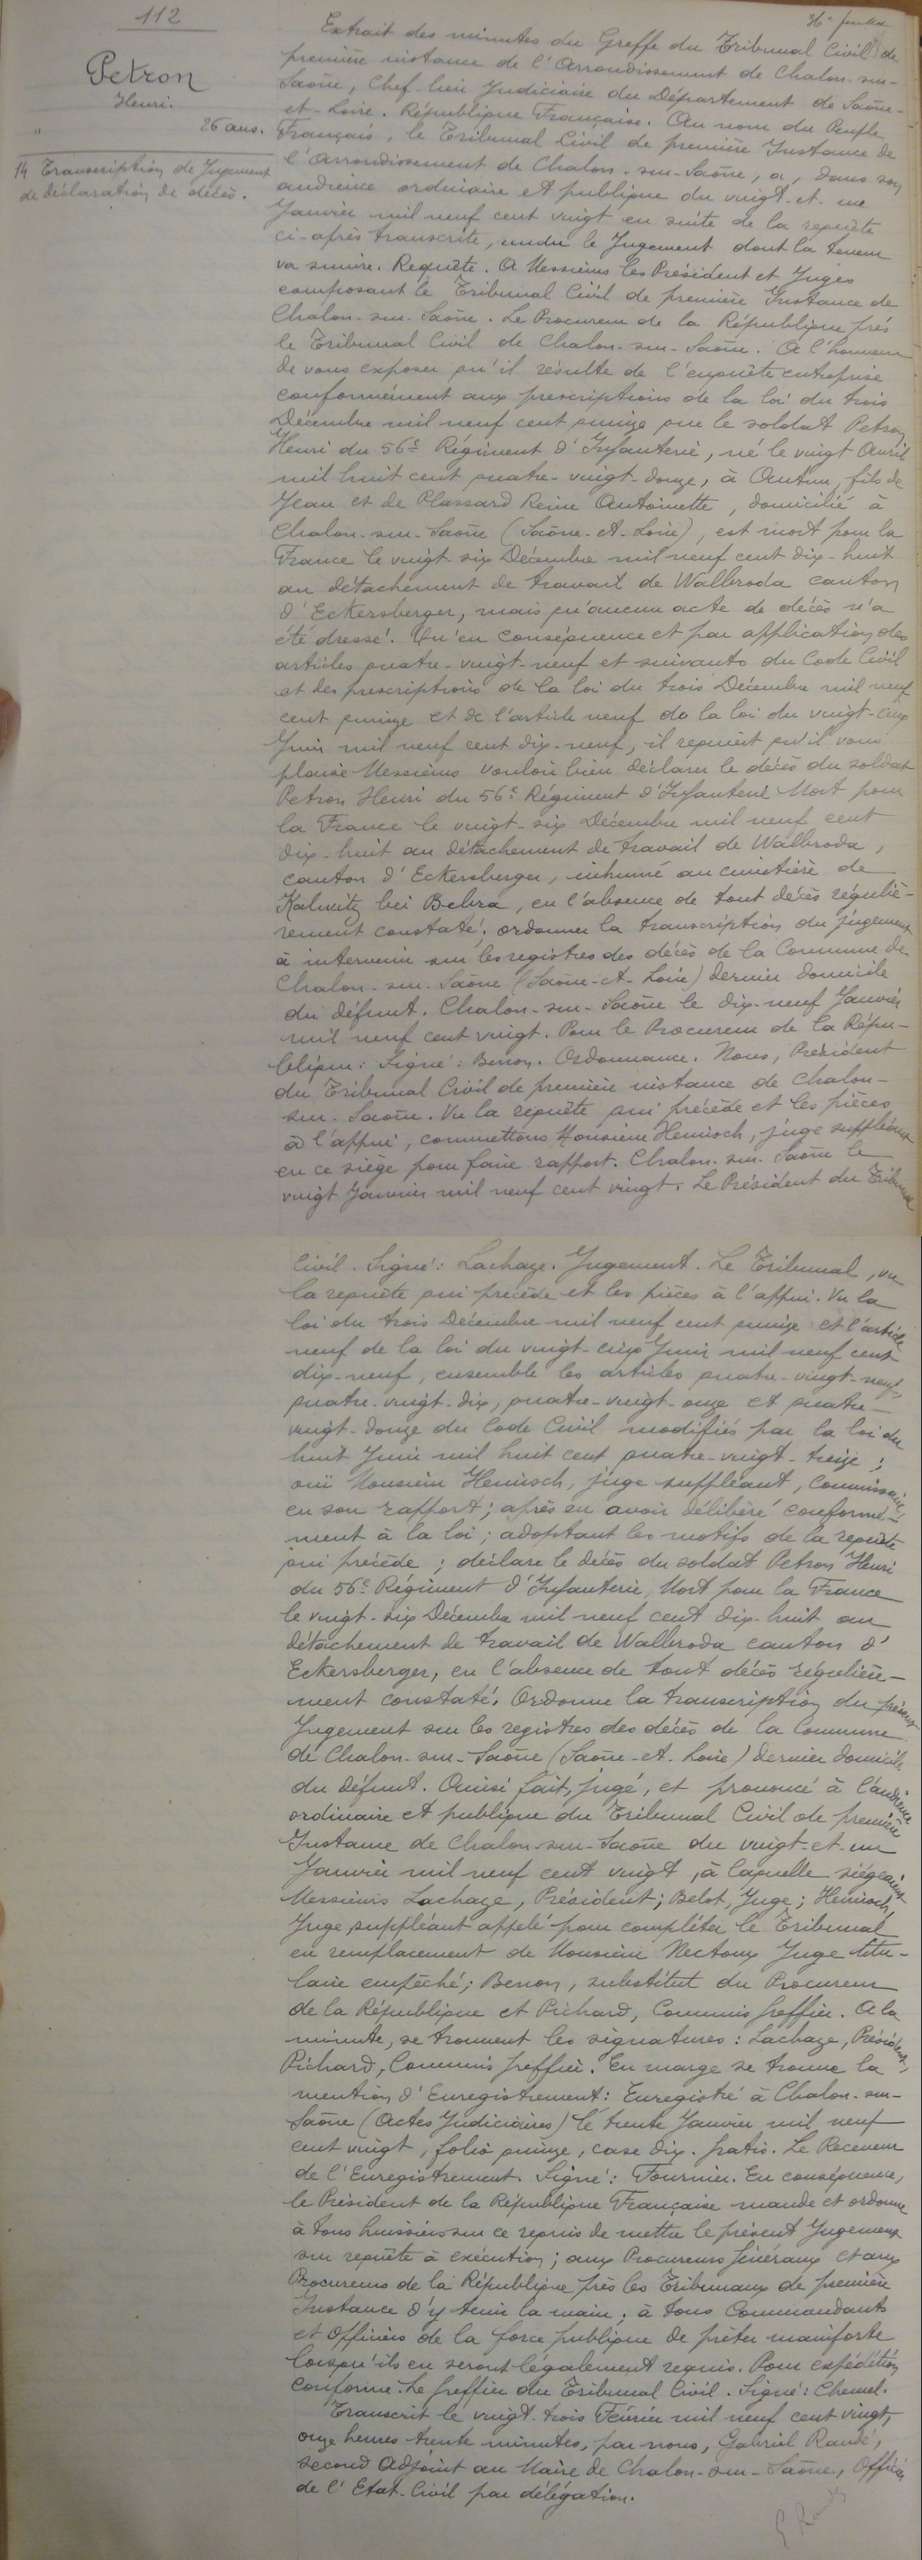 112
Petron
Henri.
26 ans.
14 Transcription de Jugement
de déclaration de décès.
Extrait des minutes du Greffe du Tribunal Civil de
première instance de l'Arrondissement de Chalon-sur-
Saône, Chef-lieu Judiciaire du Département de Saône-
et-Loire. République Française. Au nom du Peuple
Français, le Tribunal Civil de première Instance de
l'Arrondissement de Chalon-sur-Saône, a, dans son
audience ordinaire et publique du vingt-et-un
Janvier mil neuf cent vingt en suite de la requête
ci-après transcrite, rendu le Jugement dont la teneur
va suivre. Requête. A Messieurs les Président et Juges
composant le Tribunal Civil de première Instance de
Chalon-sur-Saône. Le Procureur de la République près
le Tribunal Civil de Chalon-sur-Saône. A l'honneur
de vous exposer qu'il résulte de l'enquête entreprise
conformément aux prescriptions de la loi du trois
Décembre mil neuf cent quinze que le soldat Petron
Henri du 56e Régiment d'Infanterie, né le vingt Avril
mil huit cent quatre-vingt-douze, à Autun, fils de
Jean et de Plassard Reine Antoinette, domicilié à
Chalon-sur-Saône (Saône-et-Loire), est mort pour la
France le vingt-six Décembre mil neuf cent dix-huit
au détachement de travail de Walbroda canton
d'Eckersberger, mais qu'aucun acte de décès n'a
été dressé. Qu'en conséquence et par application des
articles quatre-vingt-neuf et suivants du Code Civil
et des prescriptions de la loi du trois Décembre mil neuf
cent quinze et de l'article neuf de la loi du vingt-cinq
Juin mil neuf cent dix-neuf, il requiert qu'il vous
plaise Messieurs vouloir bien déclarer le décès du soldat
Petron Henri du 56e Régiment d'Infanterie Mort pour
la France le vingt-six Décembre mil neuf cent
dix-huit au détachement de travail de Walbroda,
canton d'Eckersberger, inhumé au cimetière de
Kalwitz bei Bebra, en l'absence de tout décès réguliè-
rement constaté; ordonner la transcription du jugement
à intervenir sur les registres des décès de la Commune de
Chalon-sur-Saône (Saône-et-Loire) dernier domicile
du défunt. Chalon-sur-Saône le dix-neuf Janvier
mil neuf cent vingt. Pour le Procureur de la Répu-
blique: Signé: Benon. Ordonnance. Nous, Président
du Tribunal Civil de première instance de Chalon-
sur-Saône. Vu la requête qui précède et les pièces
à l'appui, commettons Monsieur Hemioch, juge suppléant
en ce siège pour faire rapport. Chalon-sur-Saône le
vingt Janvier mil neuf cent vingt. Le Président du Tribunal
Civil. Signé: Lachaze. Jugement. Le Tribunal, vu
la requête qui précède et les pièces à l'appui. Vu la
loi du trois Décembre mil neuf cent quinze et l'article
neuf de la loi du vingt-cinq Juin mil neuf cent
dix-neuf, ensemble les articles quatre-vingt-neuf,
quatre-vingt-dix, quatre-vingt-onze et quatre-
vingt-douze du Code Civil modifiés par la loi du
huit Juin mil huit cent quatre-vingt-treize;
ouï Monsieur Hemioch, juge suppléant, Commissaire,
en son rapport; après en avoir délibéré conformé-
ment à la loi; adoptant les motifs de la requête
qui précède; déclare le décès du soldat Petron Henri
du 56e Régiment d'Infanterie, Mort pour la France
le vingt-six Décembre mil neuf cent dix-huit au
détachement de travail de Walbroda canton d'
Eckersberger, en l'absence de tout décès régulière-
ment constaté. Ordonne la transcription du présent
Jugement sur les registres des décès de la Commune
de Chalon-sur-Saône (Saône-et-Loire) dernier domicile
du défunt. Ainsi fait, jugé, et prononcé à l'audience
ordinaire et publique du Tribunal Civil de première
Instance de Chalon-sur-Saône du vingt-et-un
Janvier mil neuf cent vingt, à laquelle siégeaient
Messieurs Lachaze, Président; Belot, Juge; Hemioch,
Juge suppléant appelé pour compléter le Tribunal
en remplacement de Monsieur Nectoux Juge titu-
laire empêché; Benon, substitut du Procureur
de la République et Pichard, Commis greffier. A la
minute, se trouvent les signatures: Lachaze, Président,
Pichard, Commis greffier. En marge se trouve la
mention d'Enregistrement: Enregistré à Chalon-sur-
Saône (Actes Judiciaires) le trente Janvier mil neuf
cent vingt, folio quinze, case dix. gratis. Le Receveur
de l'Enregistrement. Signé: Fournier. En conséquence,
le Président de la République Française mande et ordonne
à tous huissiers sur ce requis de mettre le présent Jugement
sur requête à exécution; aux Procureurs Généraux et aux
Procureurs de la République près les Tribunaux de première
Instance d'y tenir la main; à tous Commandants
et Officiers de la force publique de prêter mainforte
lorsqu'ils en seront légalement requis. Pour expédition
conforme. Le greffier du Tribunal Civil. Signé: Chemel.
Transcrit le vingt-trois Février mil neuf cent vingt,
onze heures trente minutes, par nous, Gabriel Raudé,
second Adjoint au Maire de Chalon-sur-Saône, Officier
de l'Etat-Civil par délégation.